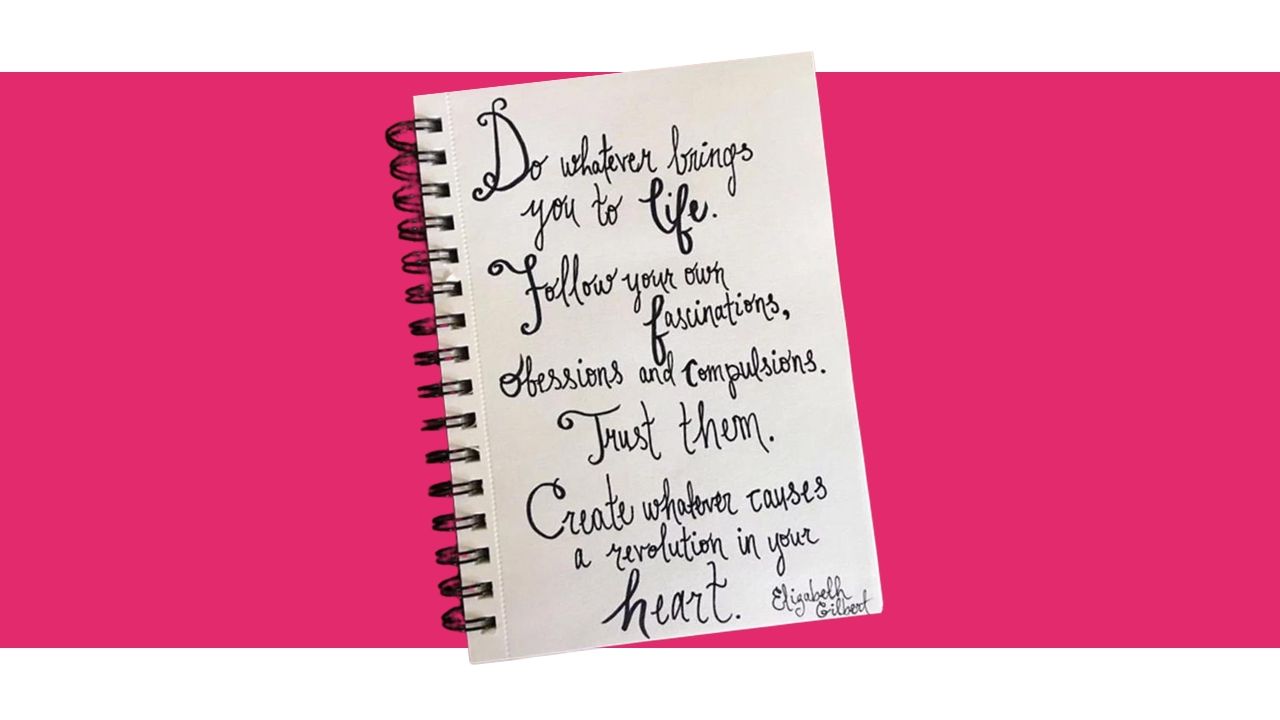 Do whatever brings
you to life.
Follow your own
fascinations,
obessions and compulsions.
Trust them.
Create whatever causes
a revolution in your
heart.
Elizabeth
Gilbert